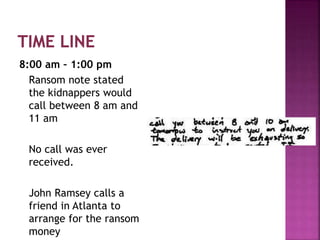 TIME LINE
8:00 am – 1:00 pm
Ransom note stated
the kidnappers would
call between 8 am and
11 am
No call was ever
received.
John Ramsey calls a
friend in Atlanta to
arrange for the ransom
money
call you between 8 and 10 am
tomorrow to instruct you on delivery.
The delivery will be exhausting so